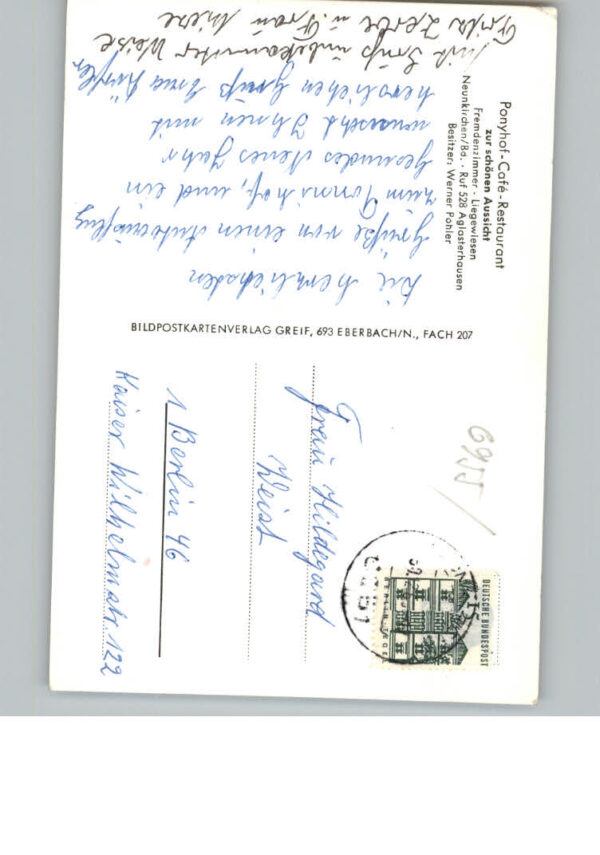 Ponyhof-Café-Restaurant
zur schönen Aussicht
Fremdenzimmer - Liegewiesen
Neunkirchen/Bd. · Ruf 528 Aglasterhausen
Besitzer: Werner Pohler
Die herzlichsten
Grüße von einen Autoausflug
zum Ponnihof, und ein
gesundes Neues Jahr
wünscht Ihnen mit
herzlichen Gruß Erna
mit Gruß unbekannter Weise
u. Frau
BILDPOSTKARTENVERLAG GREIF, 693 EBERBACH/N., FACH 207
6955/
DEUTSCHE BUNDESPOST
BERLIN TEGEL
Frau Hildegard
Weist
1 Berlin 46
Kaiser Wilhelmstr. 122